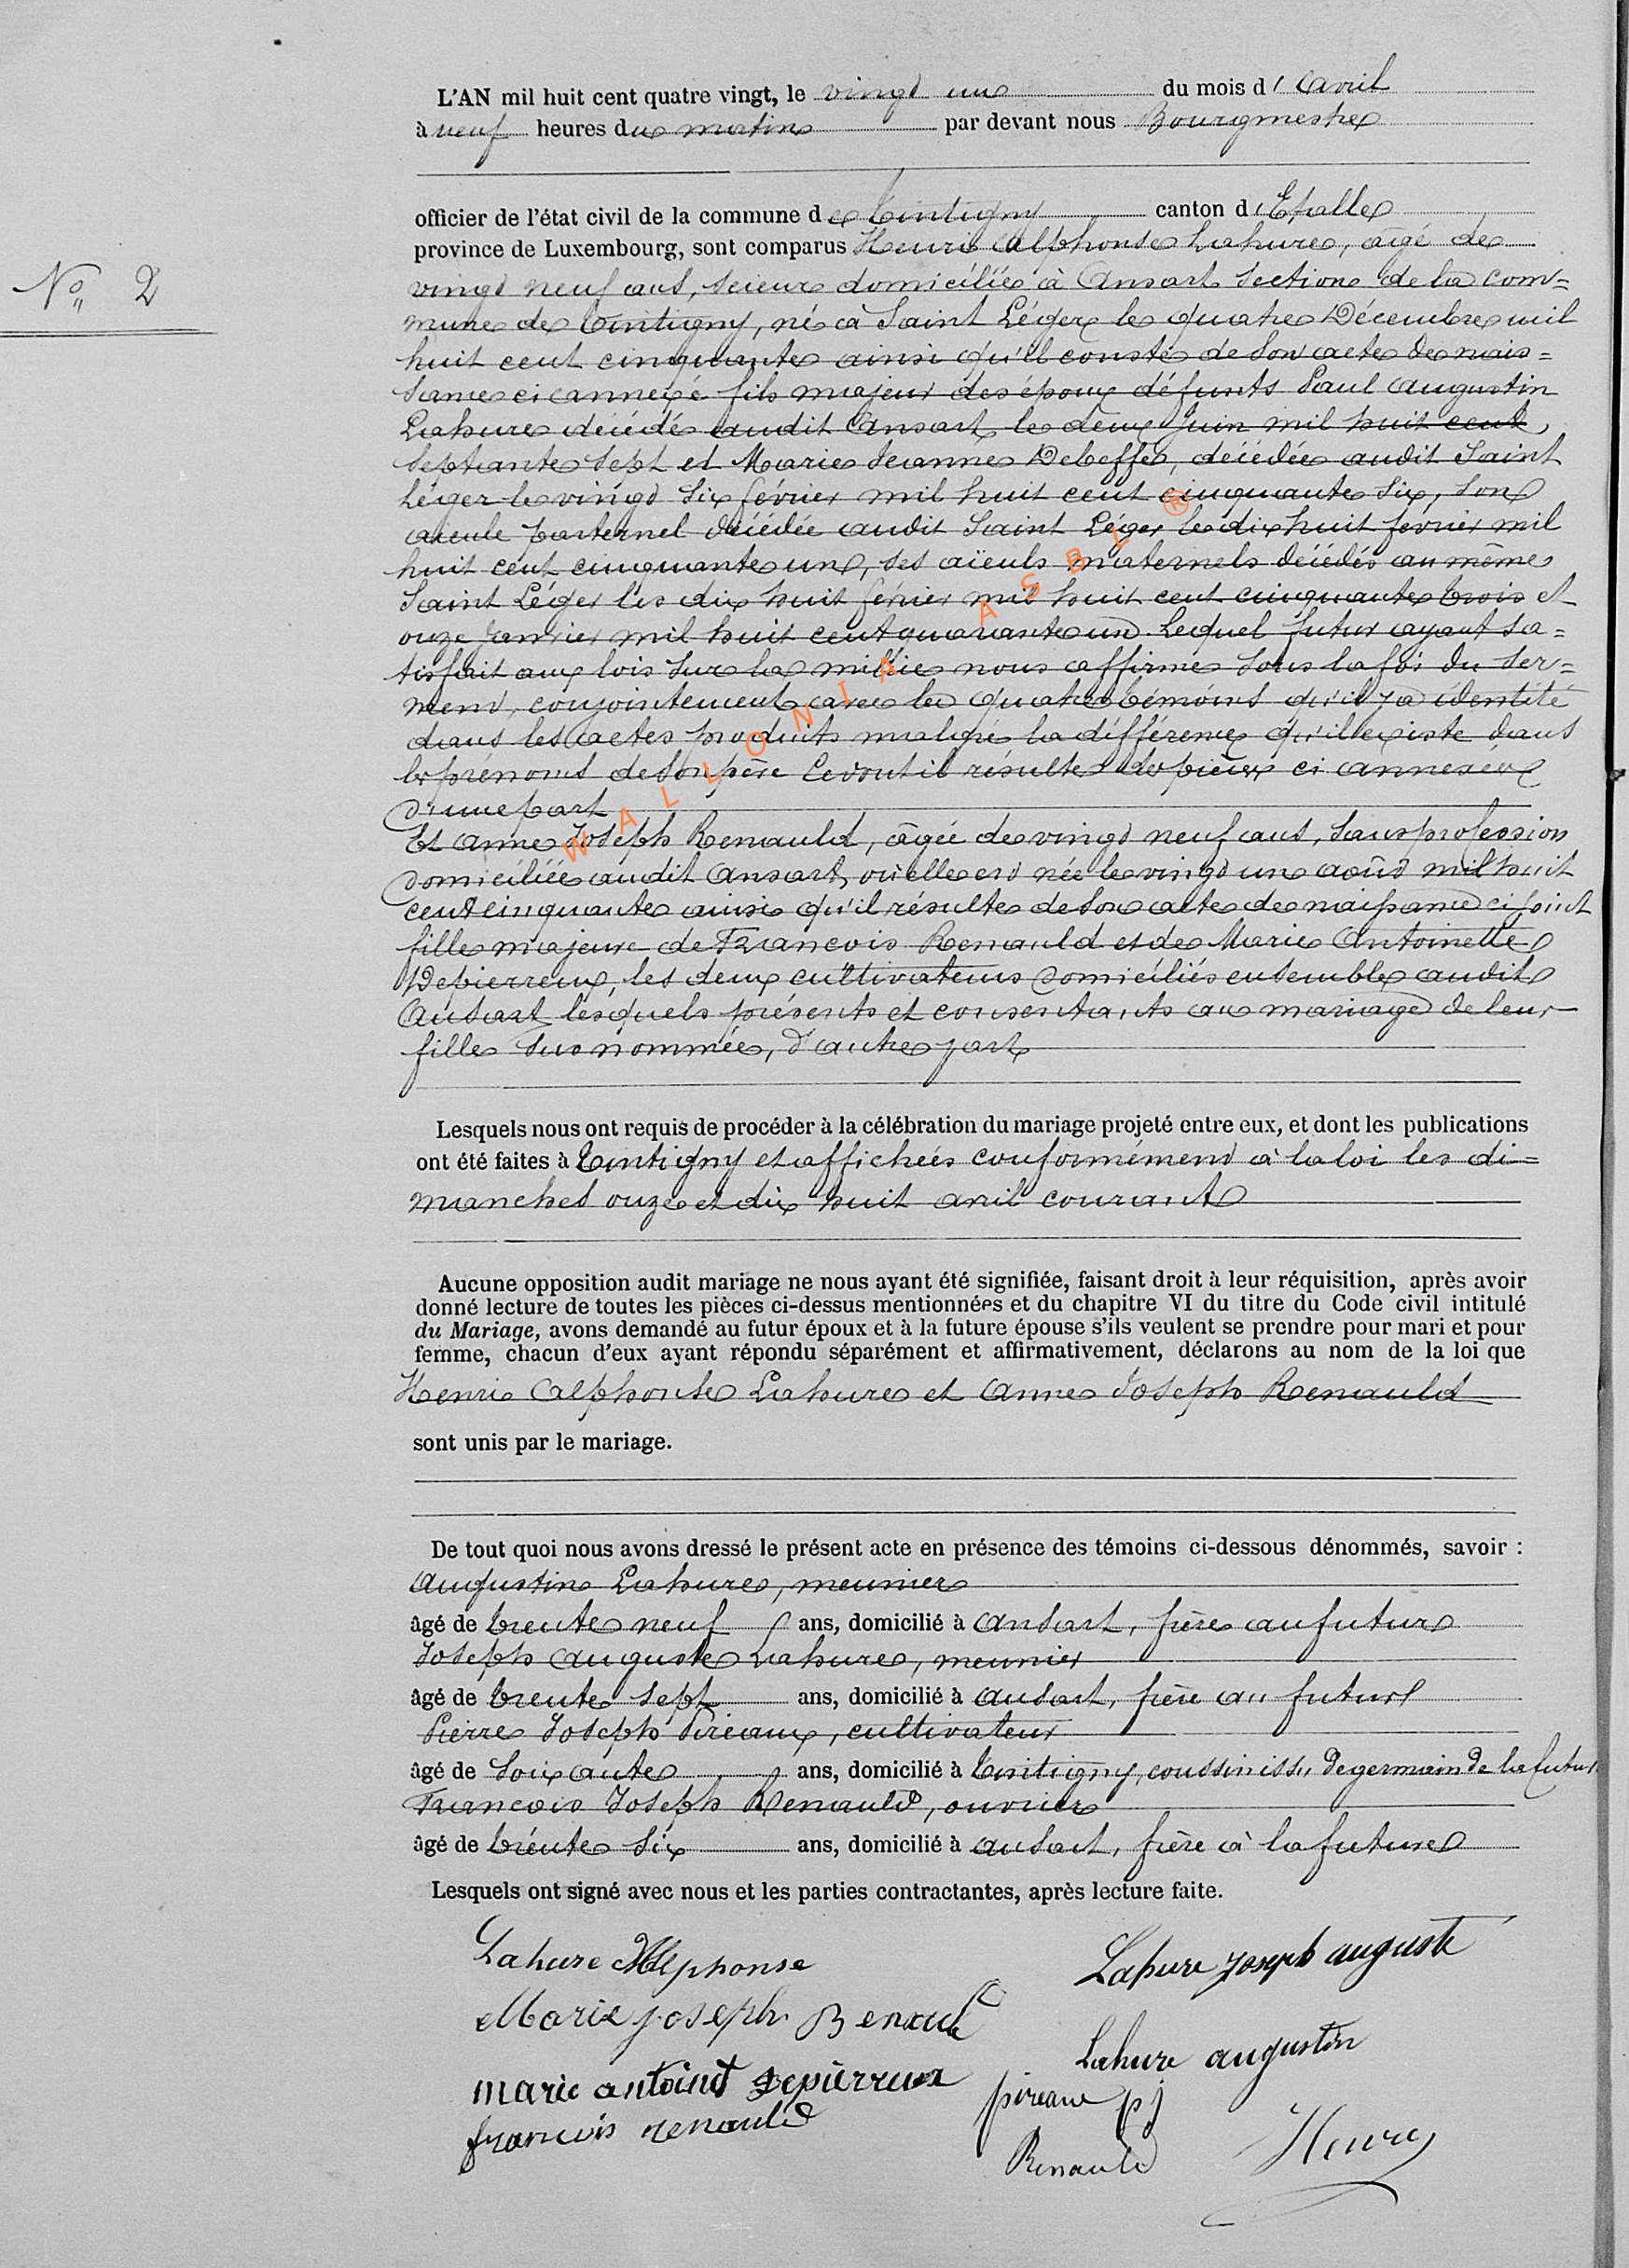 L'AN mil huit cent quatre vingt, le vingt un du mois d'avril
à neuf heures du matin par devant nous Bourgmestre
officier de l'état civil de la commune de Tintigny canton d'Etalle
province de Luxembourg, sont comparus Henri Alphonse Lahure, âgé de
N° 2
vingt neuf ans, scieur domicilié à Ansart section de la com=
mune de Tintigny, né à Saint Léger le quatre Décembre mil
huit cent cinquante ainsi qu'il conste de son acte de nais=
sance ci annexé fils majeur des époux défunts Paul Augustin
Lahure décédé audit Ansart le deux Juin mil huit cent
septante sept et Marie Jeanne Debeffe, décédée audit Saint
Léger le vingt six février mil huit cent cinquante six, son
aieule paternel décédée audit Saint Léger le dix huit février mil
huit cent cinquante un, ses aïeuls maternels décédés au même
Saint Léger les dix huit février mil huit cent cinquante trois et
onze Janvier mil huit cent quarante un. Lequel futur ayant sa=
tisfait aux lois sur la milice nous affirme sous la foi du ser=
ment, conjointement avec les quatre témoins qu'il y a identité
dans les actes produits malgré la différence qu'il existe dans
les prénoms de son père le tout il résulte des pièces ci annexées
d'une part
Et Anne Joseph Renauld, âgée de vingt neuf ans, sans profession
domiciliée audit Ansart, où elle est née le vingt un août mil huit
cent cinquante ainsi qu'il résulte de son acte de naissance ci joint
fille majeure de Francois Renauld et de Marie Antoinette
Depierreux, les deux cultivateurs domiciliés ensemble audit
Ansart lesquels présents et consentants au mariage de leur
fille sus nommée, d'autre part
Lesquels nous ont requis de procéder à la célébration du mariage projeté entre eux, et dont les publications
ont été faites à Tintigny et affichées conformément à la loi les di=
manches onze et dix huit avril courant
Aucune opposition audit mariage ne nous ayant été signifiée, faisant droit à leur réquisition, après avoir
donné lecture de toutes les pièces ci-dessus mentionnées et du chapitre VI du titre du Code civil intitulé
du Mariage, avons demandé au futur époux et à la future épouse s'ils veulent se prendre pour mari et pour
femme, chacun d'eux ayant répondu séparément et affirmativement, déclarons au nom de la loi que
Henri Alphonse Lahure et Anne Joseph Renauld
sont unis par le mariage.
De tout quoi nous avons dressé le présent acte en présence des témoins ci-dessous dénommés, savoir :
Augustin Lahure, meunier
âgé de trente neuf ans, domicilié à Ansart, frère au futur
Joseph Auguste Lahure, meunier
âgé de trente sept ans, domicilié à Ansart, frère au futur
Pierre Joseph Pireaux, cultivateur
âgé de soixante ans, domicilié à Tintigny, cousin issu de germain de la future
Francois Joseph Renauld, ouvrier
âgé de trente six ans, domicilié à Ansart, frère à la future
Lesquels ont signé avec nous et les parties contractantes, après lecture faite.
Lahure Alphonse
Lahure Joseph auguste
Marie joseph Renauld
Lahure augustin
marie antoinet depierreux
pireaux pj
francois renauld
Renauld
Henry
WALLONIA ASBL ®